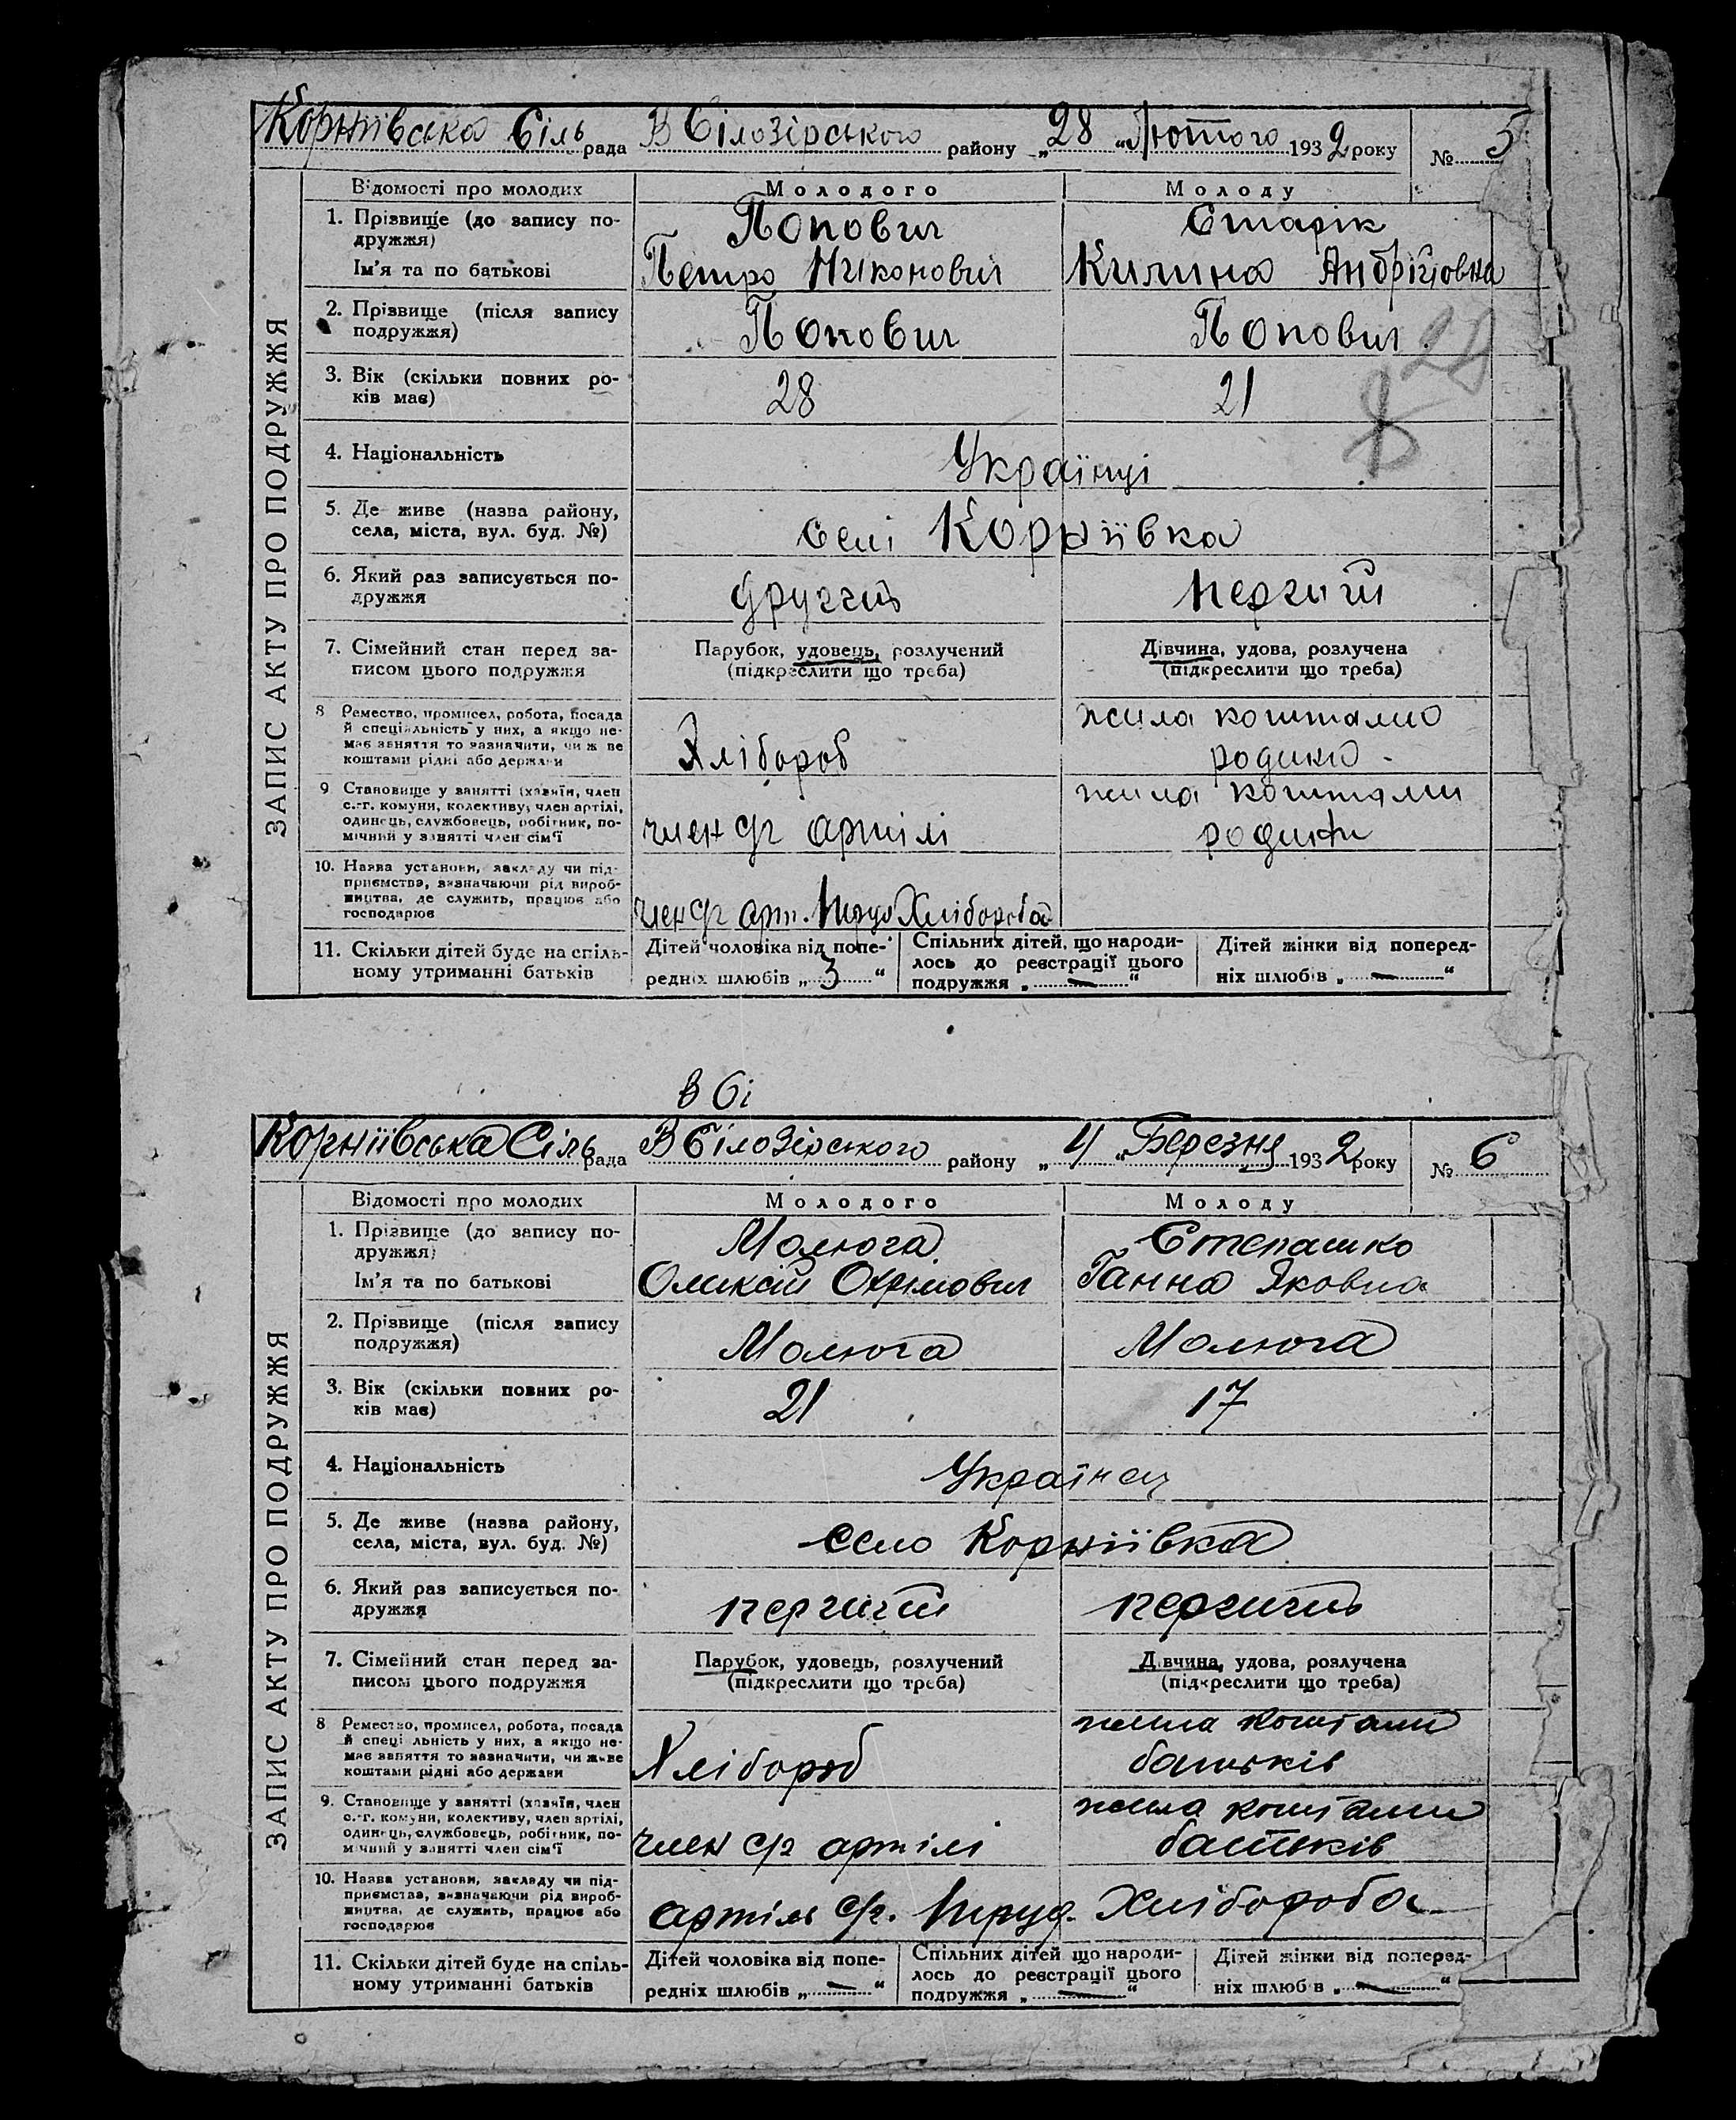 Корніївська Сіль рада В Білозірського району „28“ Лютого 1932 року № 5
ЗАПИС АКТУ ПРО ПОДРУЖЖЯ
Відомості про молодих Молодого Молоду
1. Прізвище (до запису по- Попович Старік
дружжя)
Ім'я та по батькові Петро Никонович Килина Андріївна
2. Прізвище (після запису Попович Попович
подружжя)
28
3. Вік (скільки повних ро- 28 21
ків має)
4. Національність Українці
5. Де живе (назва району, селі Корніївка
села, міста, вул. буд. №)
6. Який раз записується по- другий перший
дружжя
7. Сімейний стан перед за- Парубок, удовець, розлучений Дівчина, удова, розлучена
писом цього подружжя (підкреслити що треба) (підкреслити що треба)
8 Ремество, промисел, робота, посада жила коштамы
й спеціяльність у них, а якщо не- Хлібороб родини
має заняття то зазначити, чи живе
коштами рідні або держави
9. Становище у занятті (хазяїн, член жила коштами
с.-г. комуни, колективу, член артілі, член сг артілі родини
одинець, службовець, робітник, по-
мічний у занятті член сім'ї
10. Назва установи, закладу чи під-
приємства, зазначаючи рід вироб-
ництва, де служить, працює або член сг арт. Труд Хлібороба
господарює
11. Скільки дітей буде на спіль- Дітей чоловіка від попе- Спільних дітей, що народи- Дітей жінки від поперед-
ному утриманні батьків редніх шлюбів „ 3 “ лось до реєстрації цього ніх шлюбів „ — “
подружжя „ — “
в бі
Корніївська Сіль рада В Білозірського району „4“ Березня 1932 року № 6
ЗАПИС АКТУ ПРО ПОДРУЖЖЯ
Відомості про молодих Молодого Молоду
1. Прізвище (до запису по- Малюга Степашко
дружжя)
Ім'я та по батькові Олексій Охрімович Ганна Яковна
2. Прізвище (після запису Малюга Малюга
подружжя)
3. Вік (скільки повних ро- 21 17
ків має)
4. Національність Українец
5. Де живе (назва району, село Корніївка
села, міста, вул. буд. №)
6. Який раз записується по- перший перший
дружжя
7. Сімейний стан перед за- Парубок, удовець, розлучений Дівчина, удова, розлучена
писом цього подружжя (підкреслити що треба) (підкреслити що треба)
8 Ремество, промисел, робота, посада жила коштами
й спеціяльність у них, а якщо не- Хлібороб батьків
має заняття то зазначити, чи живе
коштами рідні або держави
9. Становище у занятті (хазяїн, член жила коштами
с.-г. комуни, колективу, член артілі, член с/г артілі батьків
одинець, службовець, робітник, по-
мічний у занятті член сім'ї
10. Назва установи, закладу чи під-
приємства, зазначаючи рід вироб- артіль с/г. Труд. Хлібороба
ництва, де служить, працює або
господарює
11. Скільки дітей буде на спіль- Дітей чоловіка від попе- Спільних дітей що народи- Дітей жінки від поперед-
ному утриманні батьків редніх шлюбів „ — “ лось до реєстрації цього ніх шлюбів „ — “
подружжя „ — “